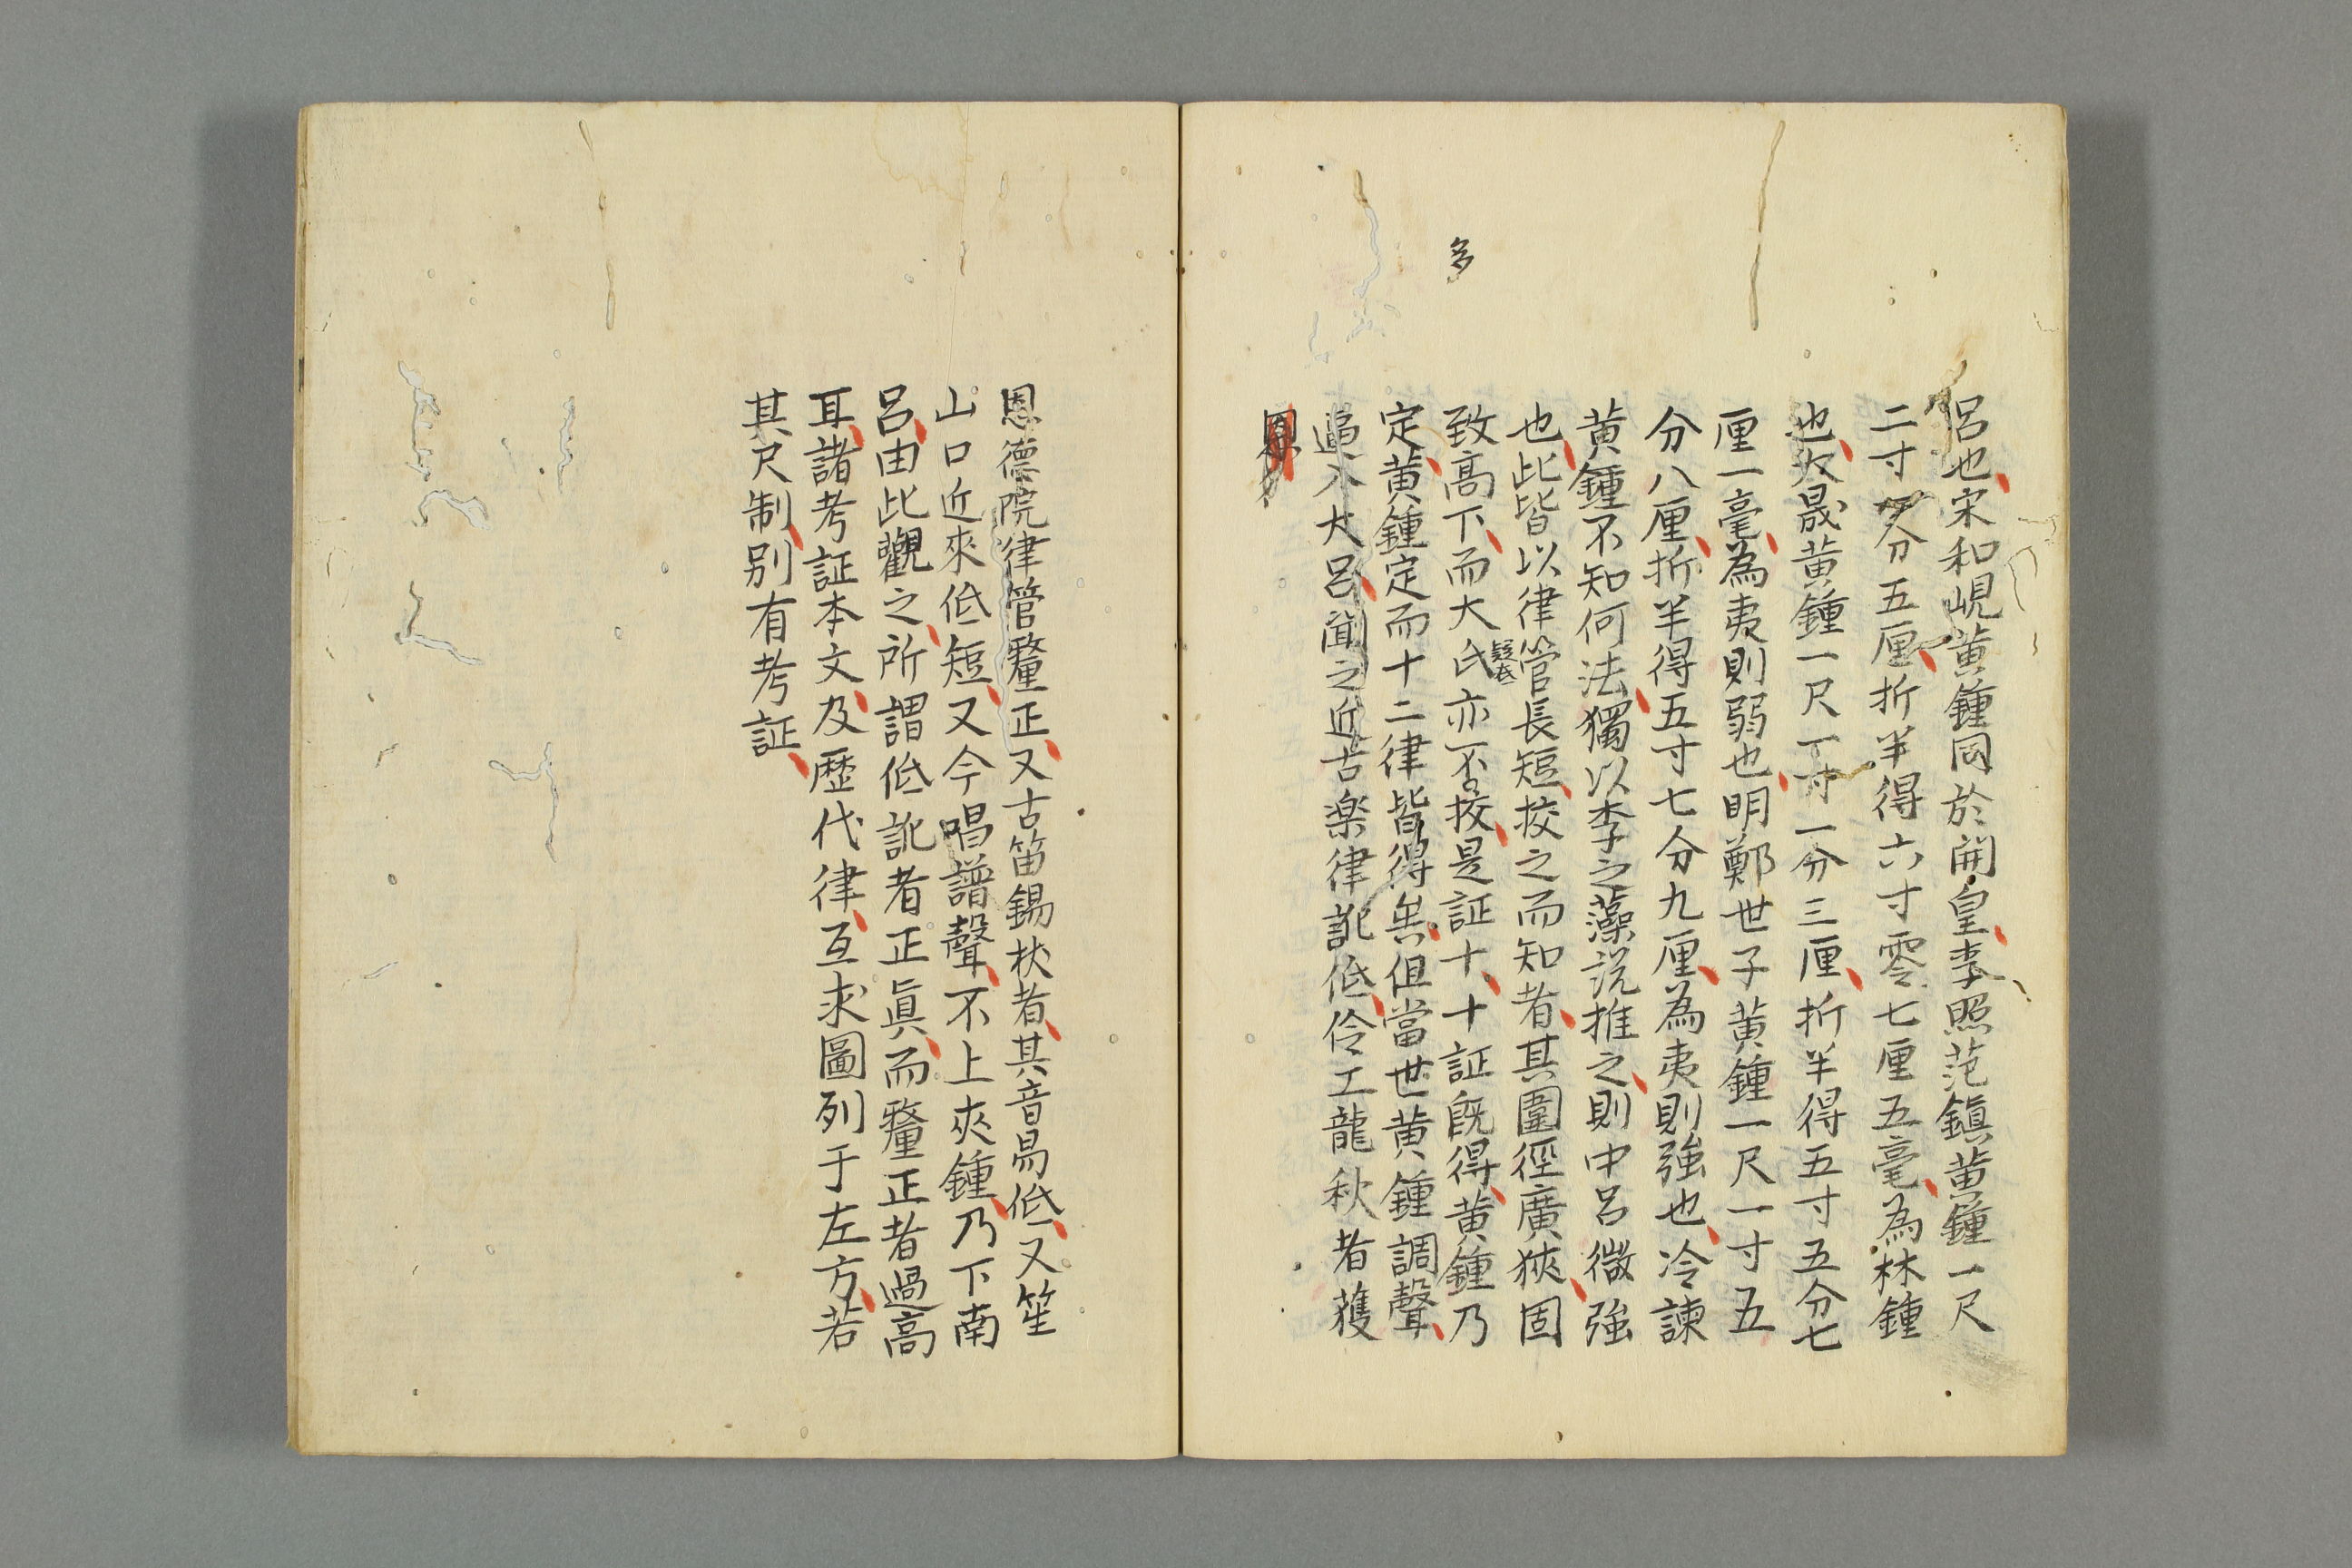 多
呂也宋和峴黄鍾同於開皇李照范鎮黄鐘一尺
二寸一分五厘折半得六寸零七厘五毫為林鍾
也大晟黄鍾一尺一寸一分三厘折半得五寸五分七
厘一毫為夷則弱也明鄭世子黄鍾一尺一寸五
分八厘折半得五寸七分九厘為夷則強也冷謙
黄鍾不知何法獨以李之藻説推之則中呂微強
也此皆以律管長短挍之而知者其圍徑廣狹固
致髙下而大氐亦不挍是証十十証既得黄鍾乃
定黄鍾定而十二律皆得矣但當世黄鍾調聲
逼入大呂聞之近古楽律訛低伶工龍秋者獲
恩
恩德院律管釐正又古笛錫杖者其音昜低又笙
山口近來低短又今唱譜聲不上夾鍾乃下南
呂由此觀之所謂低訛者正眞而釐正者過高
耳諸考証本文及歷代律互求圖列于左方若
其尺制别有考証